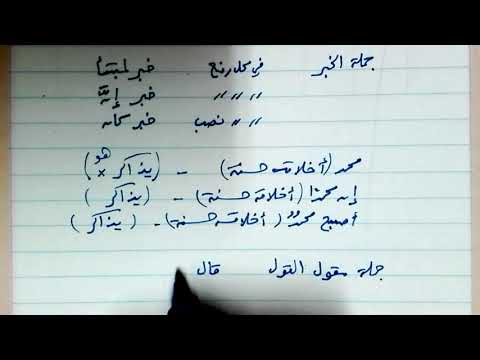 جملة الخبر في محل رفع خبر لمبتدأ
" " " خبر إنَّ
" " نصب خبر كان
محمد (أخلاقه حسنة) - (يذاكر × هو)
إن محمدًا (أخلاقه حسنة) - (يذاكر)
أصبح محمدٌ (أخلاقه حسنة) - (يذاكر)
جملة مقول القول قال